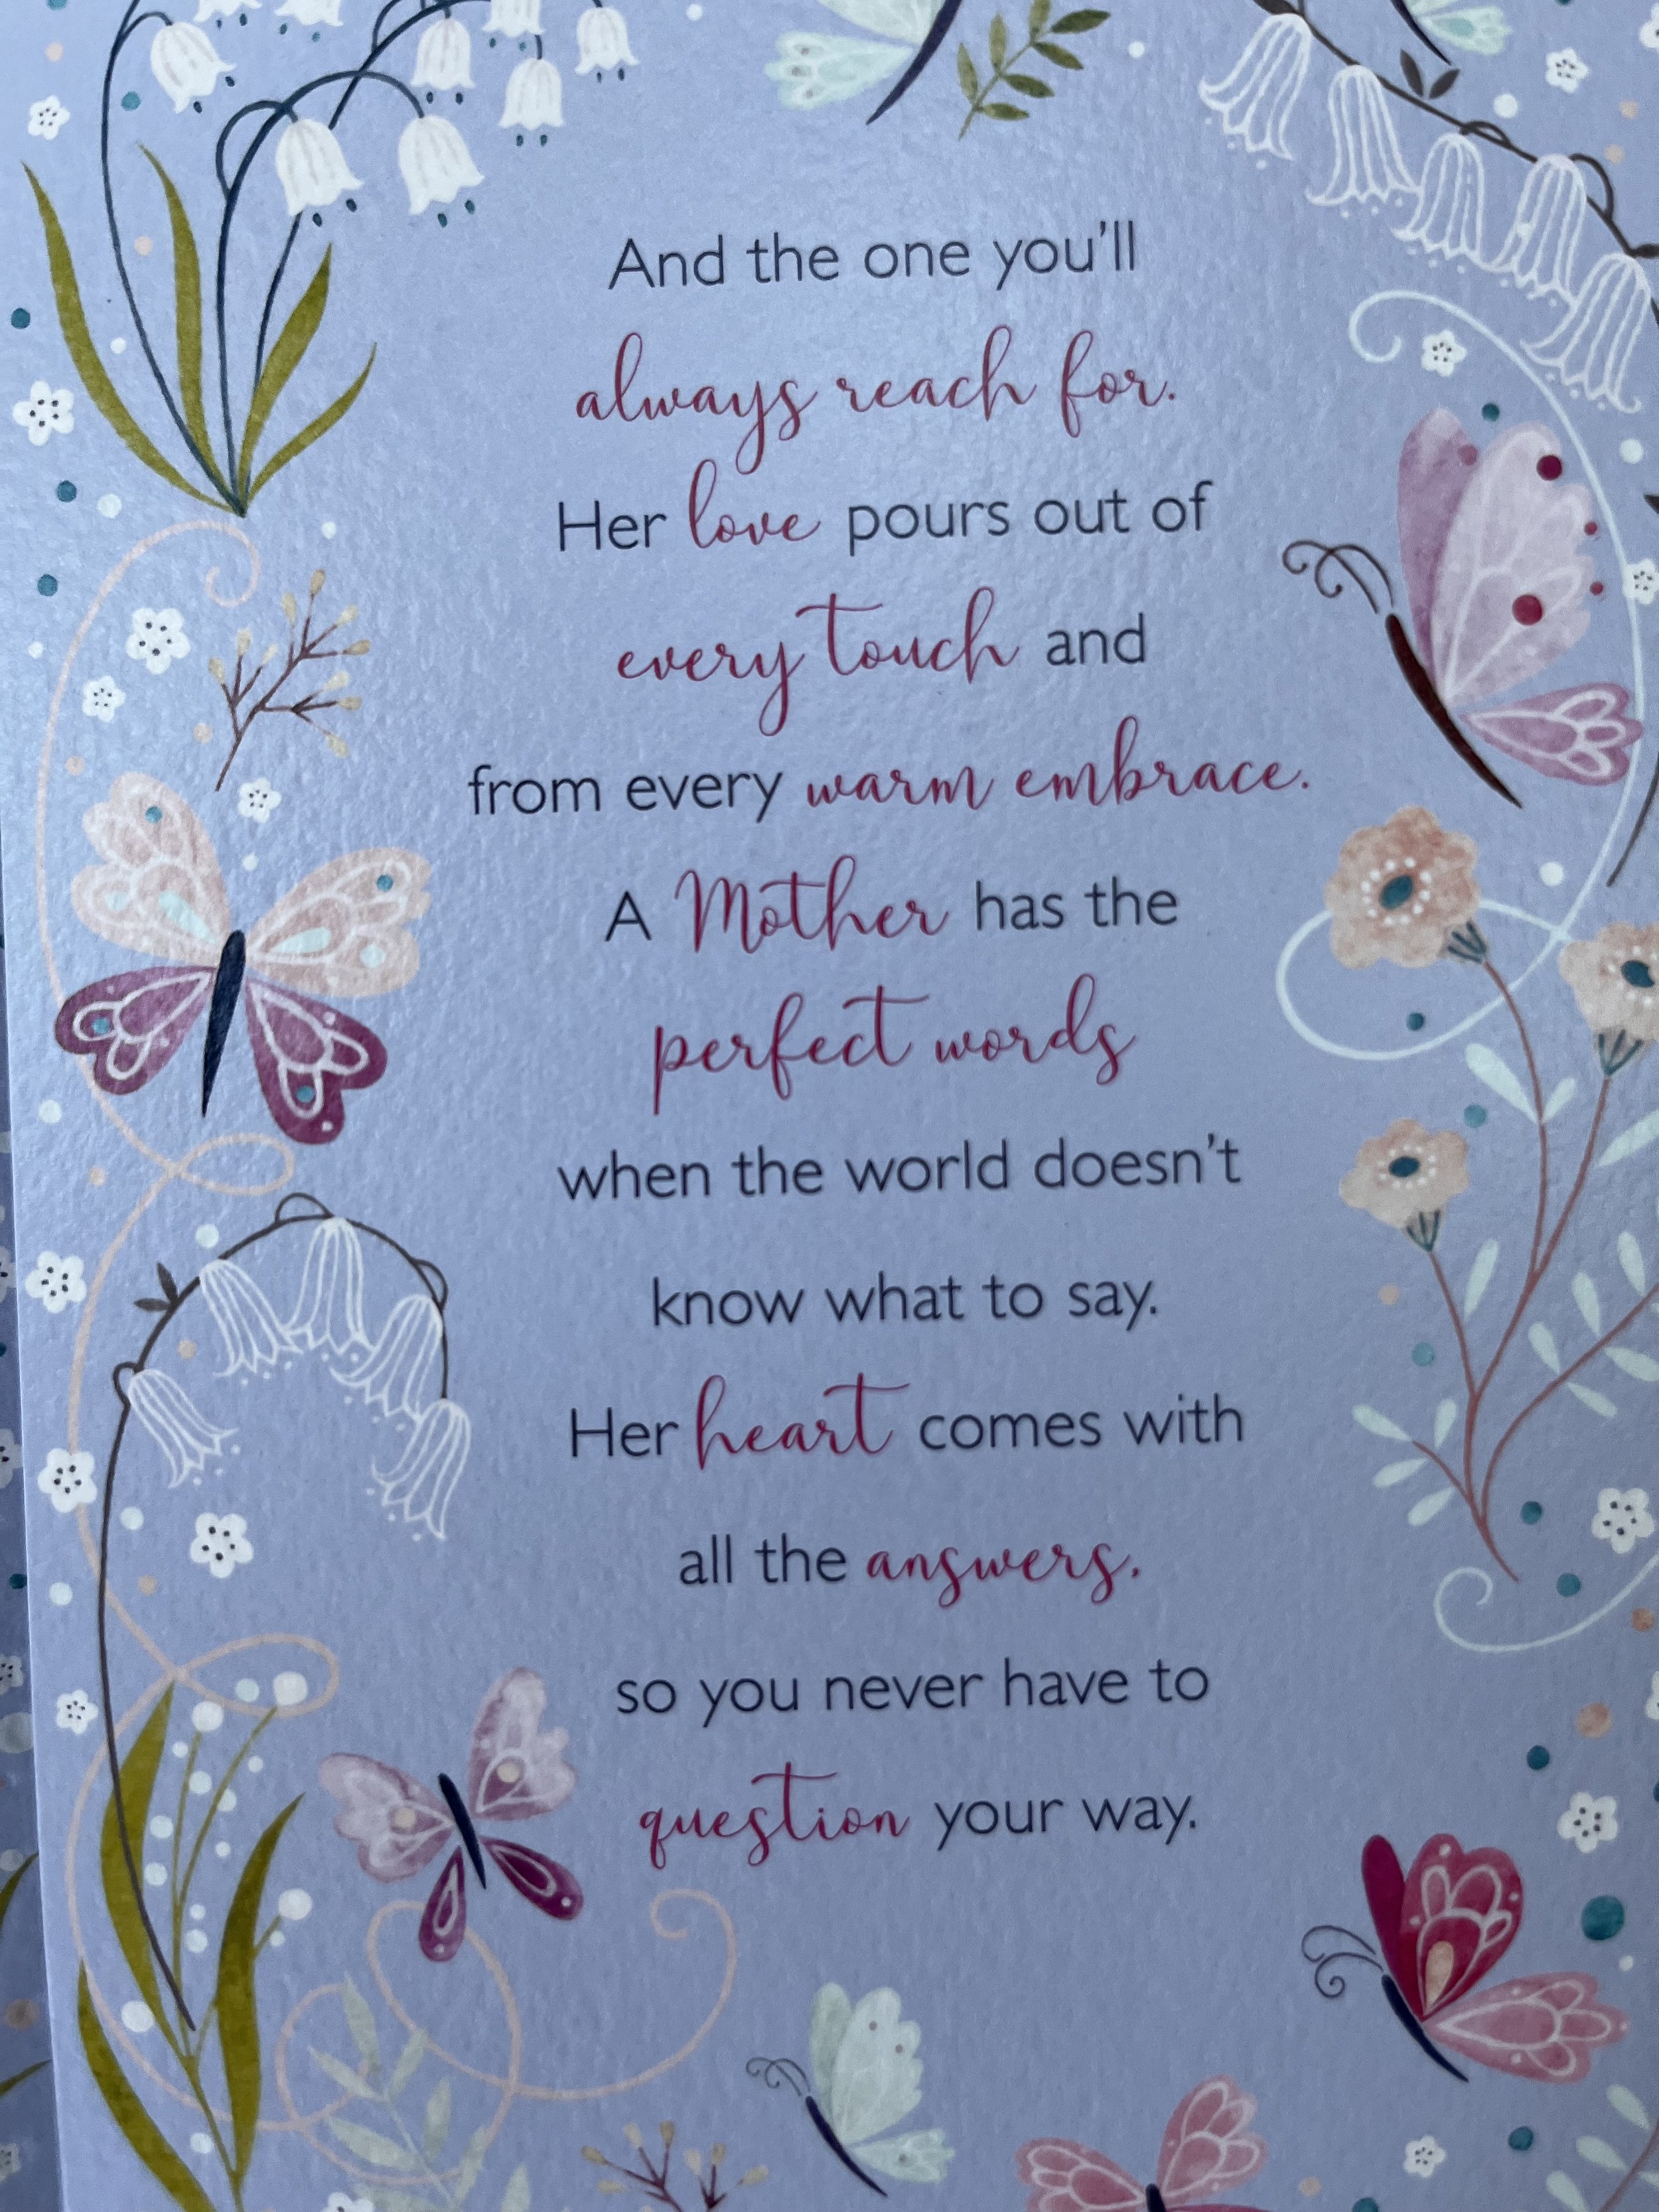 And the one you'll
always reach for.
Her love pours out of
every touch and
from every warm embrace.
A Mother has the
perfect words
when the world doesn't
know what to say.
Her heart comes with
all the answers,
so you never have to
question your way.